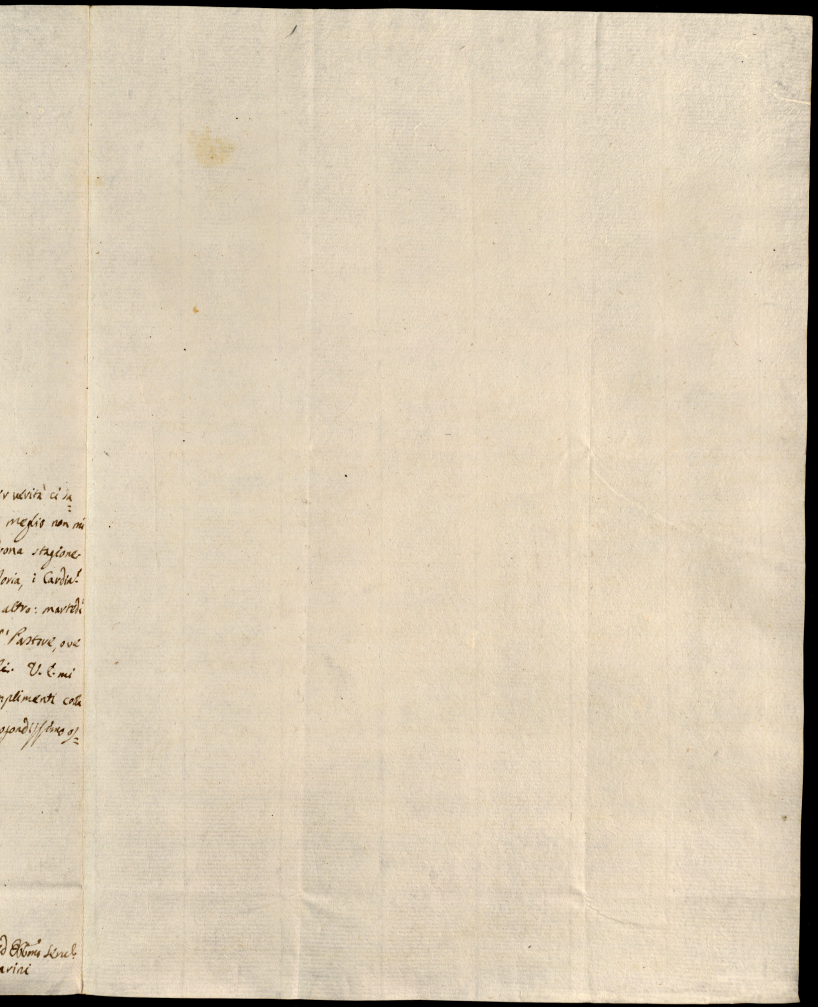 verità ci sa=
meglio non mi
bona stagione
loria, i Cardia.l
altro: martedì
Pastore, ove
V. E. mi
mplimenti colla
ofondissimo os=
ed Obb.mo Serv.e
arini